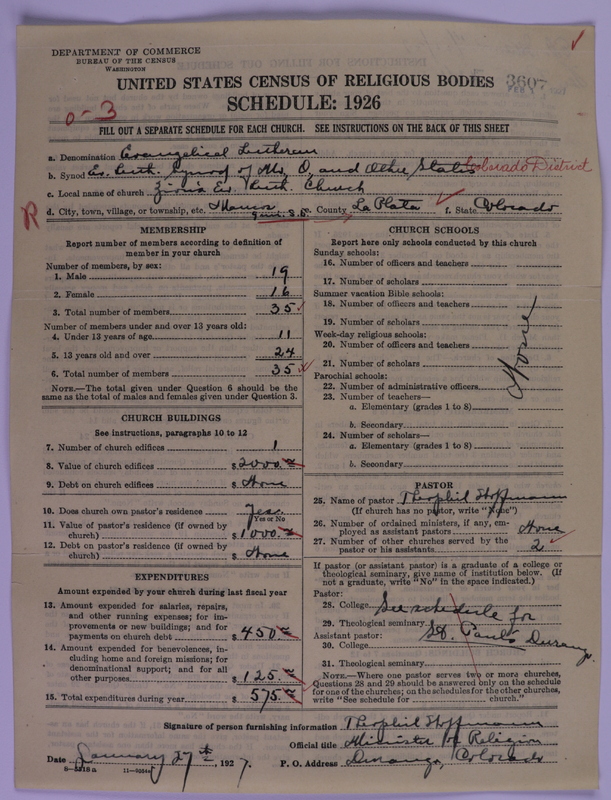 DEPARTMENT OF COMMERCE
BUREAU OF THE CENSUS
WASHINGTON
UNITED STATES CENSUS OF RELIGIOUS BODIES
3607
SCHEDULE: 1926
0-3
FILL OUT A SEPARATE SCHEDULE FOR EACH CHURCH. SEE INSTRUCTIONS ON THE BACK OF THIS SHEET
a. Denomination Evangelical Lutheran
b. Synod Ev. Luth. Synod of Mo, O, and Other States Colorado District
c. Local name of church Zion's Ev. Luth. Church
R d. City, town, village, or township, etc. Mancos e. County La Plata f. State Colorado
MEMBERSHIP
Report number of members according to definition of member in your church
Number of members, by sex:
1. Male 19
2. Female 16
3. Total number of members 35
Number of members under and over 13 years old:
4. Under 13 years of age 11
5. 13 years old and over 24
6. Total number of members 35
NOTE.—The total given under Question 6 should be the
same as the total of males and females given under Question 3.
CHURCH BUILDINGS
See instructions, paragraphs 10 to 12
7. Number of church edifices 1
8. Value of church edifices $2000.
9. Debt on church edifices $None
10. Does church own pastor's residence Yes.
Yes or No
11. Value of pastor's residence (if owned by
church) $1000.
12. Debt on pastor's residence (if owned by
church) $None
EXPENDITURES
Amount expended by your church during last fiscal year
13. Amount expended for salaries, repairs,
and other running expenses; for im-
provements or new buildings; and for
payments on church debt $450
14. Amount expended for benevolences, in-
cluding home and foreign missions; for
denominational support; and for all
other purposes $125.
15. Total expenditures during year $575.
CHURCH SCHOOLS
Report here only schools conducted by this church
Sunday schools:
16. Number of officers and teachers
17. Number of scholars
Summer vacation Bible schools:
18. Number of officers and teachers
19. Number of scholars
Week-day religious schools:
20. Number of officers and teachers
21. Number of scholars
None
Parochial schools:
22. Number of administrative officers
23. Number of teachers—
a. Elementary (grades 1 to 8)
b. Secondary
24. Number of scholars—
a. Elementary (grades 1 to 8)
b. Secondary
PASTOR
25. Name of pastor Theophil Hoffmann
(If church has no pastor, write "None")
26. Number of ordained ministers, if any, em-
ployed as assistant pastors None
27. Number of other churches served by the
pastor or his assistants 2
If pastor (or assistant pastor) is a graduate of a college or
theological seminary, give name of institution below. (If
not a graduate, write "No" in the space indicated.)
Pastor:
28. College See schedule for
29. Theological seminary
Assistant pastor: St. Paul's Durango
30. College
31. Theological seminary
NOTE.—Where one pastor serves two or more churches,
Questions 28 and 29 should be answered only on the schedule
for one of the churches; on the schedules for the other churches,
write "See schedule for church."
Signature of person furnishing information Theophil Hoffmann
Official title Minister of Religion
Date January 27th, 1927. P. O. Address Durango, Colorado
8-5318a 11-9594